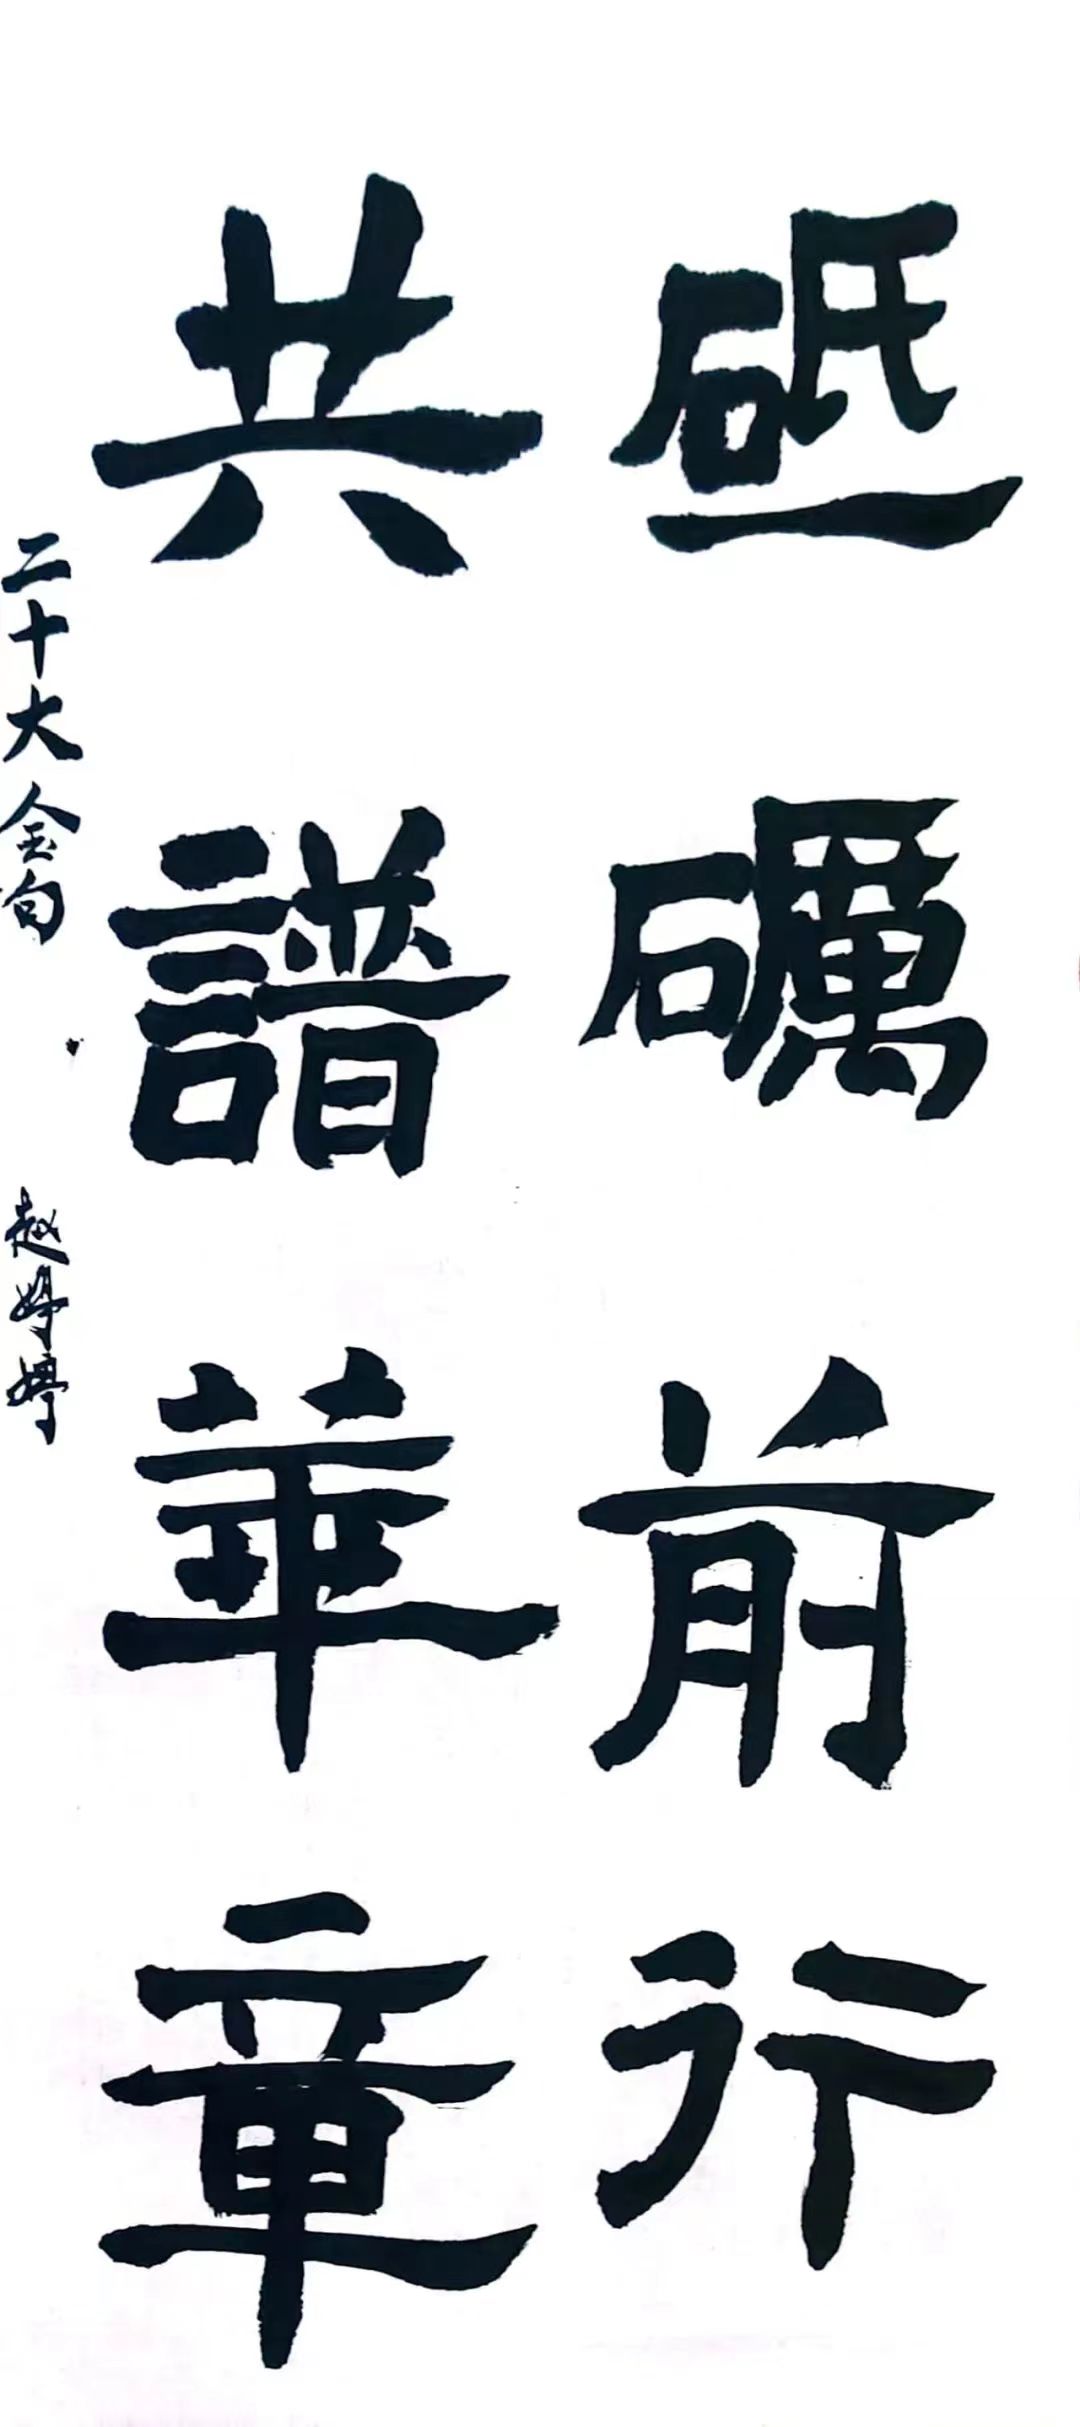 砥礪前行
共譜華章
二十大金句
赵婷婷